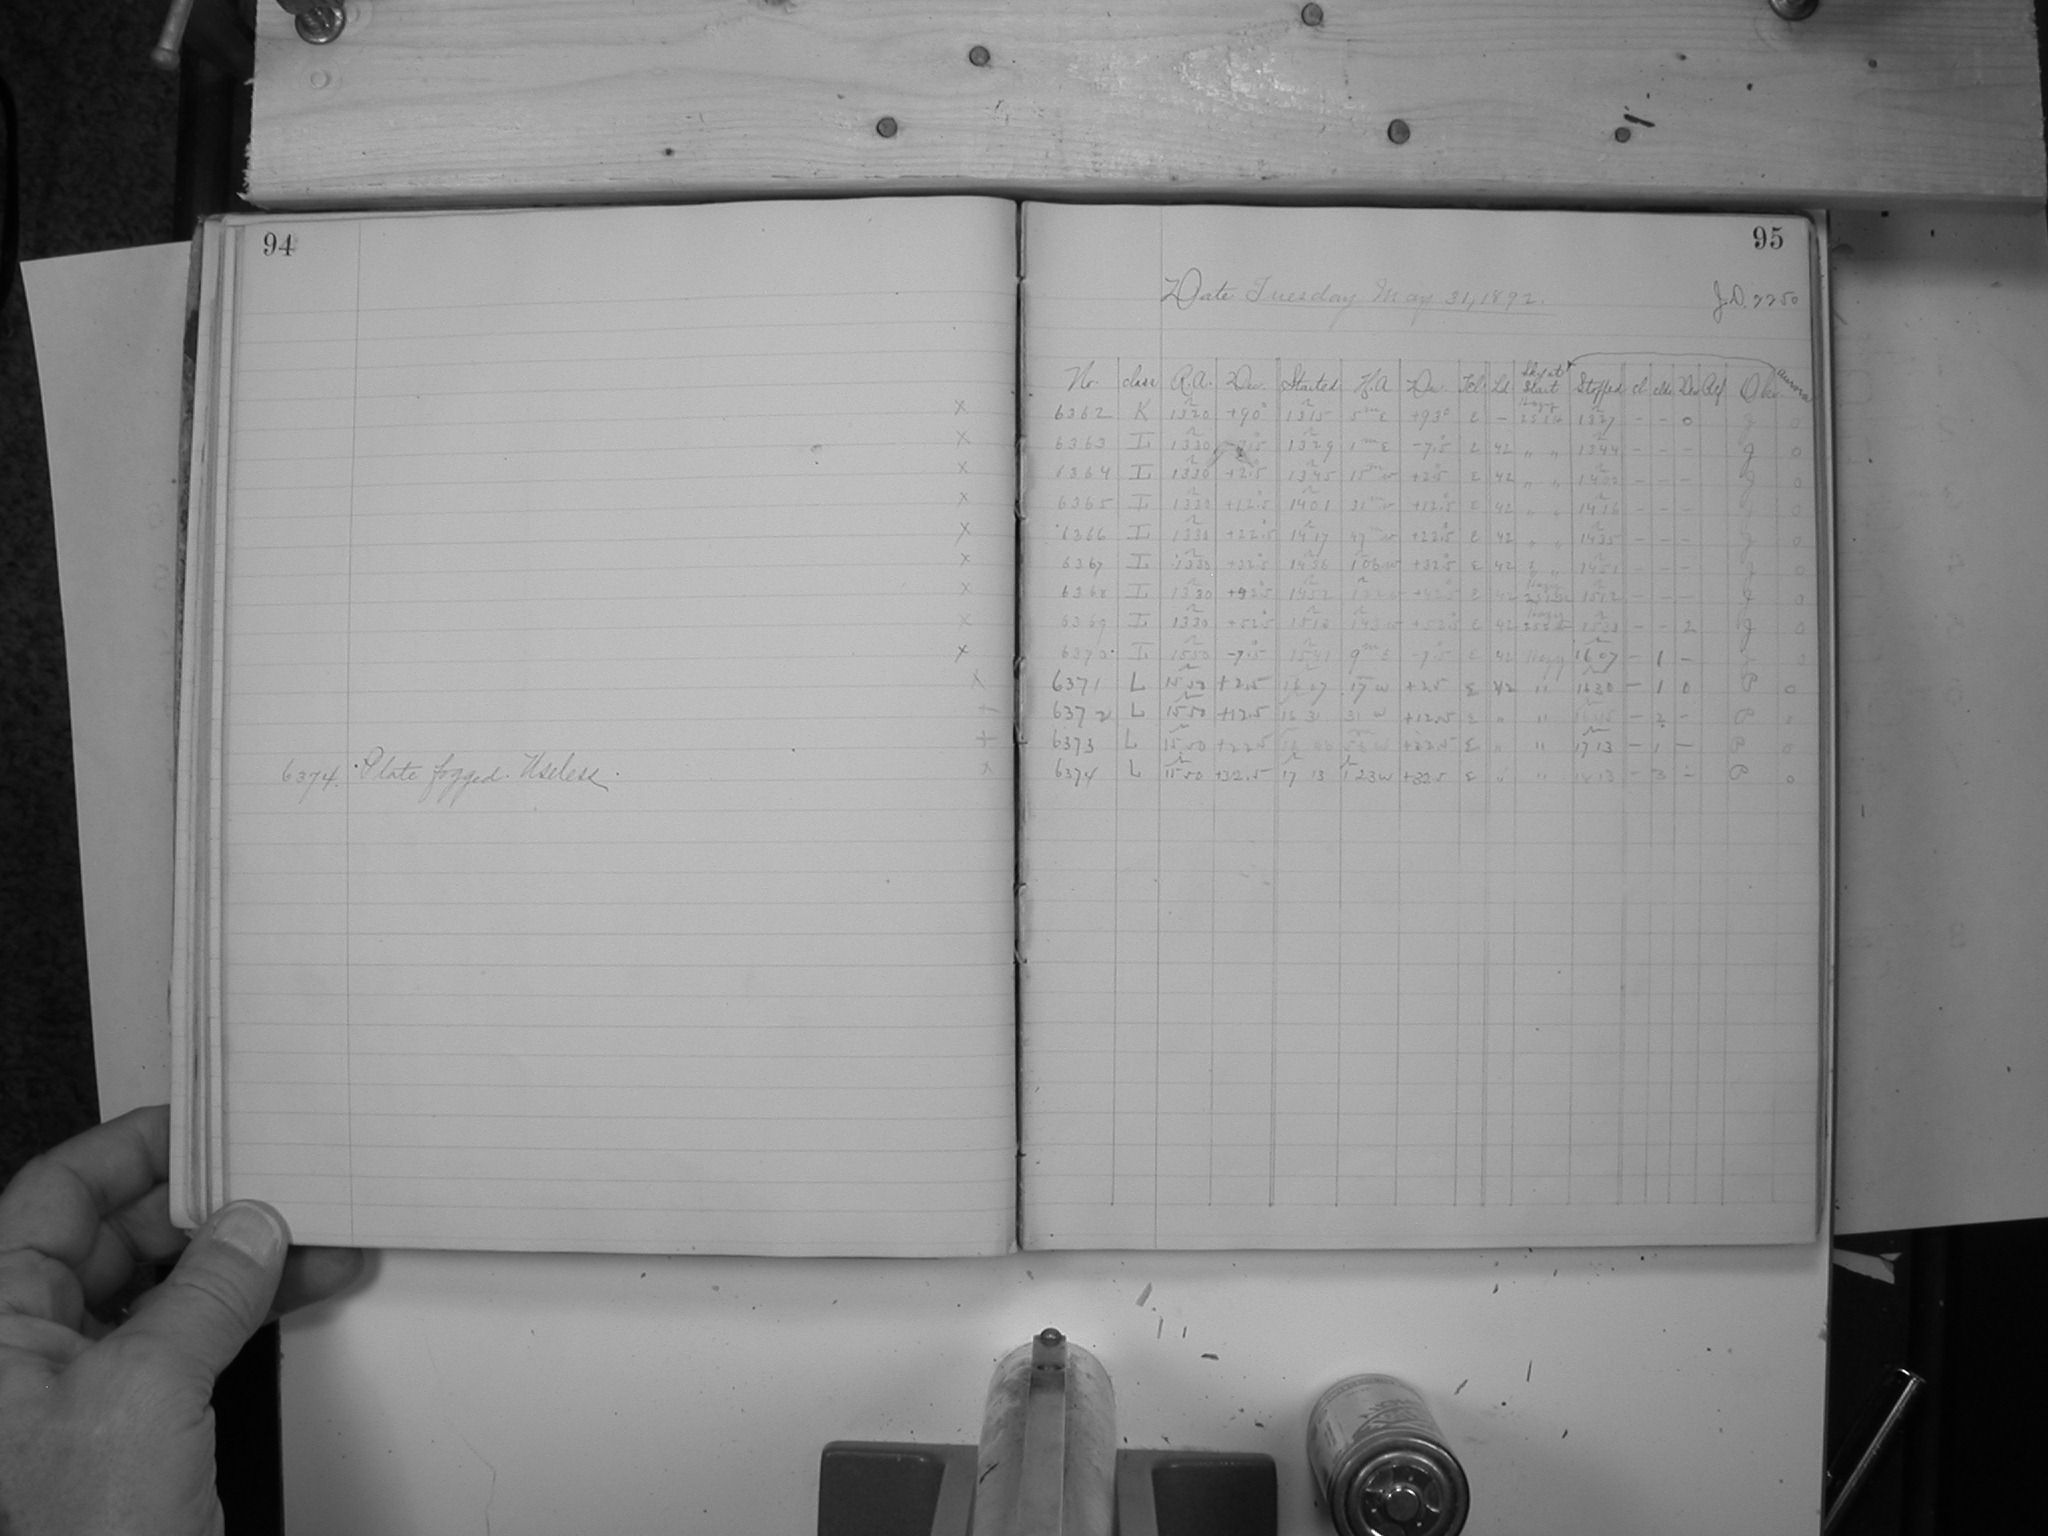 94
6374. Plate fogged. Useless.
95
Date Tuesday May 31, 1892.
J.D. 2250
No. class R.A. Dec. Started H.A Dec. Tel Ld Sky at Start Stopped cl clk Dev Ref Obs. aurora
x 6362 K 1320 +90° 1315 5m E +93° E - Hazy 1327 - - 0 J 0
x 6363 L 1330 1329 1m E -7.5 E 42 " " 1344 - - - J 0
x 6364 L 1330 +2.5 1345 15m w +2.5 E 42 " " - - - J 0
x 6365 L 1330 +12.5 1401 31m w +12.5 E 42 " " 1416 - - - J 0
x 6366 L 1330 +22.5 1417 47m w +22.5 E 42 " " 1435 - - - J 0
x 6367 L 1330 +32.5 1436 106w +32.5 E 42 " " 1451 - - - J 0
x 6368 L 1330 +42.5 1452 +42.5 E 42 Hazy 1512 - - - J 0
x 6369 L 1330 +52.5 143w +52.5 E 42 Hazy - - 2 J 0
x 6370 L 1550 -7.5 1541 9m E -7.5 E 42 Hazy 1607 - 1 - 0
x 6371 L 1550 +2.5 1607 17 w +2.5 E 42 " 1630 - 1 0 P 0
6372 L 1550 +12.5 1631 31 w +12.5 E " " - 2 - P
6373 L 1550 +22.5 E " " 1713 - 1 - P 0
x 6374 L 1550 +32.5 17 13 1 23w +32.5 E " " - 3 - P 0